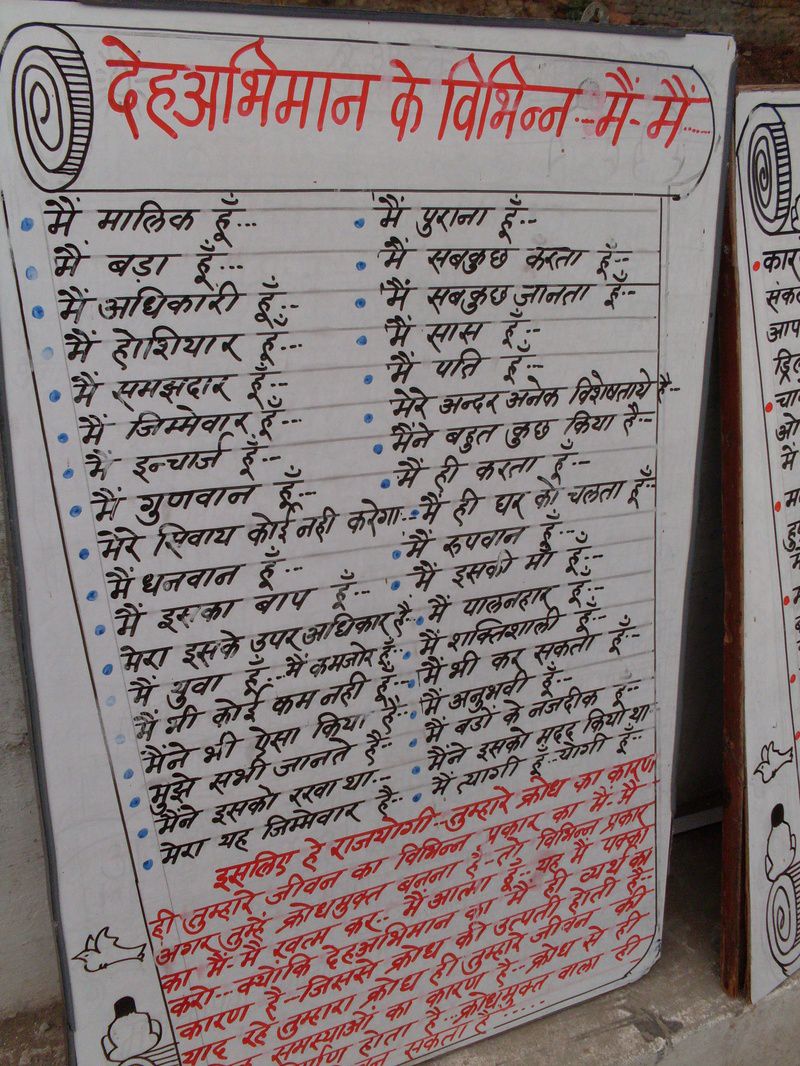 देहअभिमान के विभिन्न...मैं-मैं......
मैं मालिक हूँ...
मैं बड़ा हूँ...
मैं अधिकारी हूँ...
मैं होशियार हूँ...
मैं समझदार हूँ...
मैं जिम्मेवार हूँ...
मैं इन्चार्ज हूँ...
मैं गुणवान हूँ...
मेरे सिवाय कोई नही करेगा...
मैं धनवान हूँ...
मैं इसका बाप हूँ...
मेरा इसके उपर अधिकार है...
मैं युवा हूँ...मैं कमजोर हूँ...
मैं भी कोई कम नही हूँ...
मैंने भी ऐसा किया है...
मुझे सभी जानते है...
मैंने इसको रखा था...
मेरा यह जिम्मेवार है...
मैं पुराना हूँ...
मैं सबकुछ करता हूँ...
मैं सबकुछ जानता हूँ...
मैं सास हूँ...
मैं पति हूँ...
मेरे अन्दर अनेक विशेषताये है...
मैंने बहुत कुछ किया है...
मैं ही करता हूँ...
मैं ही घर को चलता हूँ...
मैं रुपवान हूँ...
मैं इसकी माँ हूँ...
मैं पालनहार हूँ...
मैं शक्तिशाली हूँ...
मैं भी कर सकता हूँ...
मैं अनुभवी हूँ...
मैं बडों के नजदीक हूँ...
मैंने इसको मुदद कियो था
मैं त्यागी हूँ..योगी हूँ...
इसलिए हे राजयोगी...तुम्हारे क्रोध का कारण
ही तुम्हारे जीवन का विभिन्न प्रकार का मैं-मैं
अगर तुम्हें क्रोधमुक्त बनना है-तो विभिन्न प्रकार
का मैं-मैं खत्म कर...मैं आत्मा हूँ...यह मैं पक्का
करो...क्योकि देहअभिमान का मैं ही व्यर्थ का
कारण है...जिससे क्रोध की उत्पती होती है...
याद रहे तुम्हारा क्रोध ही तुम्हारे जीवन की
समस्याओं का कारण है...क्रोध से ही
होता है...क्रोधमुक्त वाला ही
बन सकता है......
कार
संक
आप
ड्रि
चा
ओ
मैं